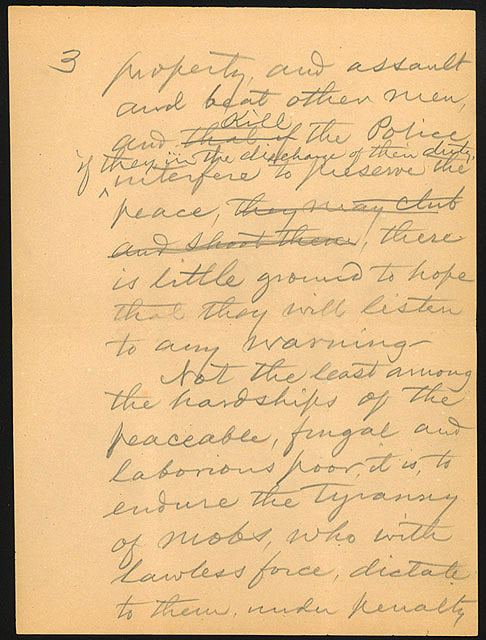 3
property, and assault
and beat other men,
and that if Kill the Police
if they in the discharge of their duty,
interfere to preserve the
peace, they may club
and shoot them, there
is little ground to hope
that they will listen
to any warning—
Not the least among
the hardships of the
peaceable, frugal and
laborious poor, it is, to
endure the tyranny
of mobs, who with
lawless force, dictate
to them, under penalty